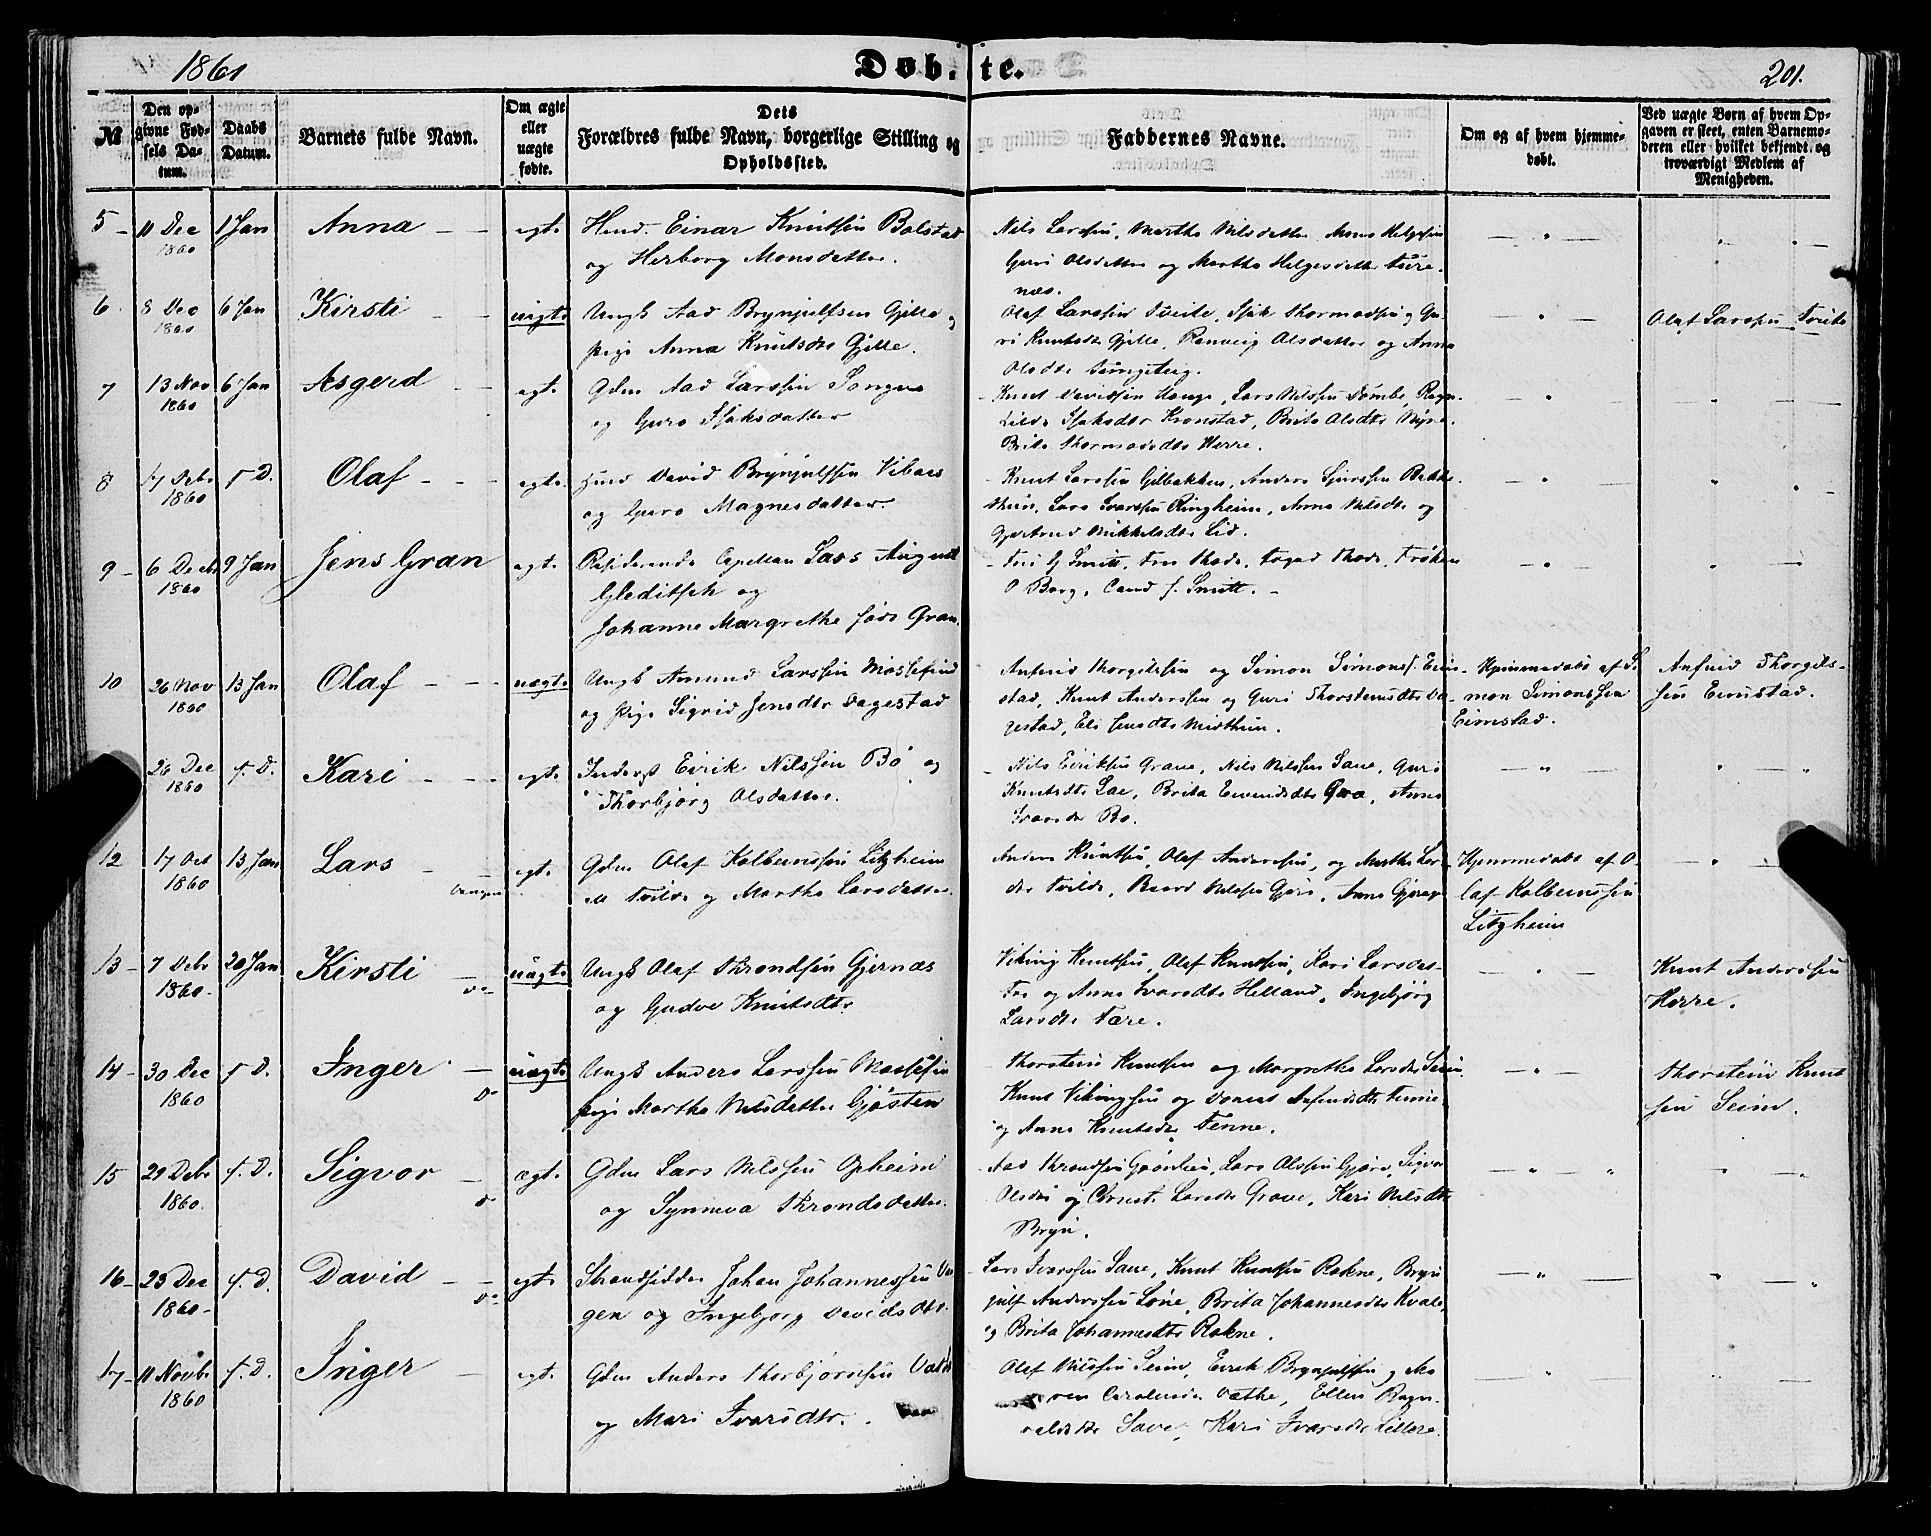 1861
Døbte.
201.
№
Den opgivne Fødsels Datum.
Daabs Datum.
Barnets fulde Navn.
Om ægte eller uægte fødte.
Dets Forældres fulde Navn, borgerlige Stilling og Opholdssted.
Faddernes Navne.
Om og af hvem hjemmedøbt.
Ved uægte Børn af hvem Opgaven er skeet, enten Barnemoderen eller hvilket bekjendt og troværdigt Medlem af Menigheden.
5 - 11 Dec 1860 1 Jan Anna egte
Einar Knutsen Bolstad
og Herborg Monsdatter.
Nils Larssen, Martha Nilsdatter, Anna Helgesen
Guri Olsdatter og Martha Helgesdatter
6. 8 Dec 1860 6 Jan Kirsti uægte
Ungk Aad Brynjulfsen Gjelle og
Pige Anna Knutsdtr Gjelle.
Olaf Larssen Tveite, Sjak Thormodsen og Gu-
ri Knutsdtr Gjelle, Ranveig Olsdatter og Anna
Olsdtr
Olaf Larssen Tveite
7 13 Nov 1860 6 Jan Asgerd egte
Gdm Aad Larssen Songve
og Guro Sjaksdatter
Knut Davidsen Hauge, Lars Nilssen Dømbe, Ragn-
Sjaksdtr Kronstad, Brita Olsdtr
Brita Thormodsdtr Herre.
8 17 Debr 1860 s. D. Olaf egte
David Brynjulfsen Vibaes
og Guro Magnesdatter
Knut Larssen Gilbakken, Anders Sjurssen Bakke-
thun, Lars Ivarssen Ringheim, Anna Nilsdtr og
Gjertrud Mikkelsdtr Lid.
9 - 6 Decbr 1860 9 Jan Jens Gran egte
Residerende Capellan Lars August
Gleditsch og
Johanne Margrethe født Gran.
Fru G Smitt, Fru Thode, Foged Thode, Frøken
O Borg, Cand J. Smitt.
10 26 Nov 1860 13 Jan Olaf uægte
Ungk Amund Larssen Mossefind
og Pige Sigrid Jensdtr Dagestad
Anfind Thorgilssen og Simon Simons. Eim-
stad, Knut Anderssen og Guri Thorsteinsdtr Da-
gestad, Eli Jensdtr Midthun.
Hjemmedøbt af Si-
mon Simonssen
Eimstad.
Anfind Thorgils-
sen Eimstad.
26 Dec 1860 s. D. Kari egte
Inderst Eirik Nilssen Bø og
Thorbjørg Olsdatter.
Nils Eiriksen Grave, Nils Nilssen Saue, Guri
Knutsdtr Sae, Brita Eivindsdtr Graa, Anna
Ivarsdtr Bø.
12 17 Oct 1860 13 Jan Lars Vangen egte
Gdm Olaf Kolbeinssen Litzheim
Tvilde og Martha Larsdatter.
Anders Knutsen, Olaf Anderssen, og Martha Lars-
dtr Tvilde, Baard Nilssen Gjøre, Anna
Hjemmedøbt af O-
laf Kolbeinssen
Litzheim
13 - 7 Debr 1860. 20 Jan Kirsti do uægte
Ungk Olaf Throndsen Gjernæs
og Gudve Knutsdtr
Viking Knutsen, Olaf Knutsen, Kari Larsdat-
ter og Anna Ivarsdtr Helland, Ingebjørg
Larsdtr Tære.
Knut Anderssen
Herre.
14 - 30 Dec 1860 s. D. Inger do uægte
Ungk Anders Larssen Mossefin
Pige Martha Nilsdatter Gjøstein
Thorstein Knutsen og Margretha Larsdtr Seim.
Knut Vikingsen og Anfindsdtr
og Anna Knutsdtr Tenne.
Thorstein Knut-
sen Seim.
15 29 Debr 1860. s. D. Sigvor do ægte
Gdm Lars Nilssen Opheim
og Synneva Throndsdatter.
Aad Throndsen Grønlien, Lars Olssen Gjøre, Sigvor
Olsdtr og Christi Larsdtr Grove, Kari Nilsdtr
Bryn.
16 - 23 Dec 1860 - s. D. David do egte
Strandsidder Johan Johannessen Van-
gen og Ingebjørg Davidsdtr.
Lars Ivarssen Saue, Knut Knutsen Rokne, Bryn-
julf Anderssen Løne, Brita Johannesdtr Kvale,
og Brita Johannesdtr Rokne.
17 - 11 Novbr 1860 s. D. Inger egte
Gdm Anders Thorbjørnsen
og Mari Ivarsdtr.
Olaf Nilssen Seim, Eirik Brynjulfsen og Ma-
ren Vethe, Ellen Ragn-
valdsdtr Saue, Kari Ivarsdtr